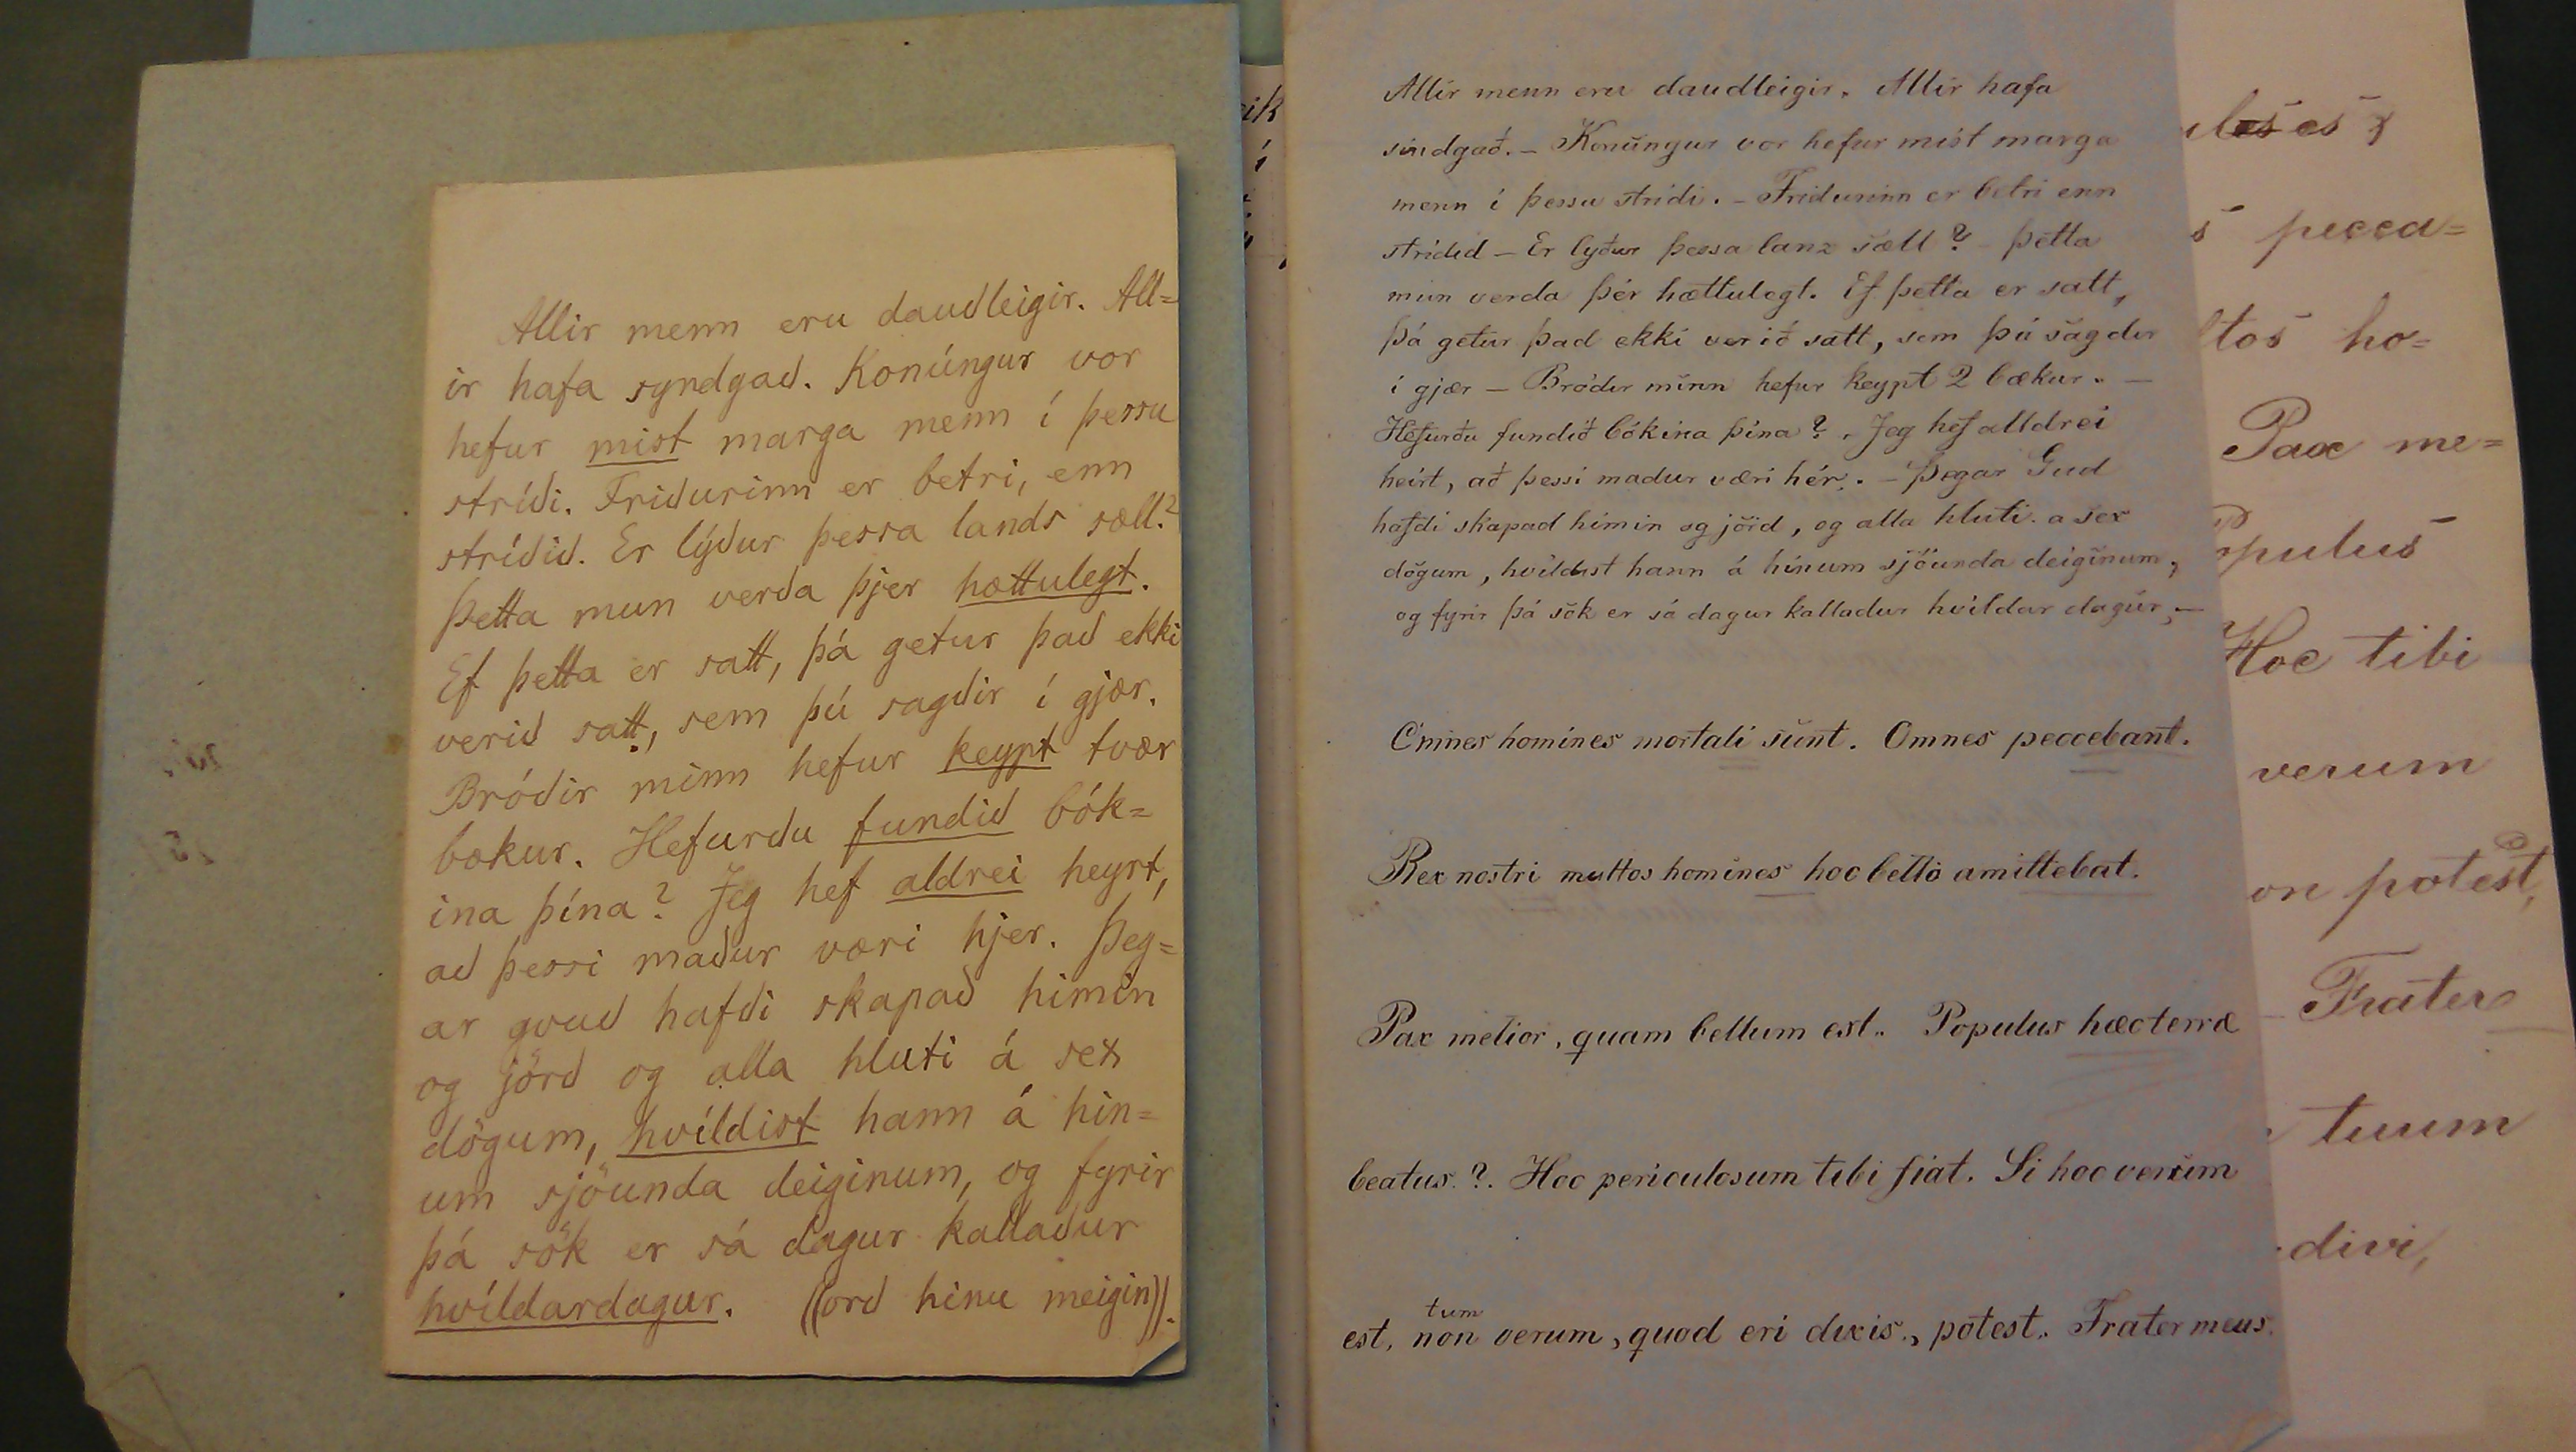 Allir menn eru dauðleigir. All=
ir hafa syndgað. Konúngur vor
hefur mist marga menn í þessu
stríði. Friðurinn er betri, enn
stríðið. Er lýður þessa lands sæll?
Þetta mun verða þjer hættulegt.
Ef þetta er satt, þá getur það ekki
verið satt, sem þú sagðir í gjær.
Bróðir minn hefur keypt tvær
bækur. Hefurðu fundið bók=
ina þína? Jeg hef aldrei heyrt,
að þessi maður væri hjer. Þeg=
ar gvuð hafði skapað himin
og jörð og alla hluti á sex
dögum, hvíldist hann á hin=
um sjöunda deiginum, og fyrir
þá sök er sá dagur kallaður
hvíldardagur. ((orð hinu meigin)).
Allir menn eru daudleigir. Allir hafa
sindgað. – Konúngur vor hefur mist marga
menn í þessu strídi. – Fridurinn er betri enn
strídid – Er lyður þessa lanz sæll? – þetta
mun verda þér hættulegt. Ef þetta er satt,
þá getur þad ekki verið satt, sem þú sagdir
í gjær – Bródir minn hefur keypt 2 bækur. –
Hefurðu fundið bókina þína? . Jeg hef alldrei
heirt, að þessi madur væri hér. – Þegar Gud
hafdi skapad himin og jörd, og alla hluti a sex
dögum, hvíldist hann á hinum sjöunda deiginum,
og fyrir þá sök er sá dagur kalladur hvíldar dagur, –
Omnes homines mortali sunt. Omnes peccebant.
Rex nostri multos homines hoc bello amittebat.
Pax melior, quam bellum est.. Populus hæc terræ
beatus.?. Hoc periculosum tibi fiat. Si hoc verum
tum
est, non verum, quod eri dixis., potest.. Frater meus.
es
pecca=
tos ho=
Pax me=
pulus
Hoc tibi
verum
on potest,
Frater
tuum
divi,